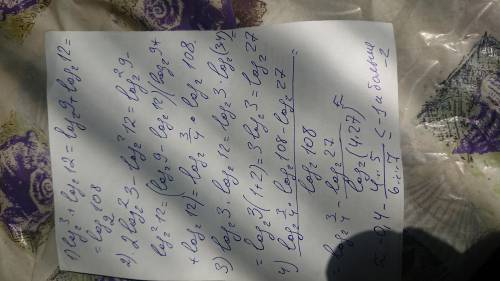 1) log₂3 + log₂12 = log₂9 + log₂12 =
= log₂108
2) 2log₂²3 - log₂²12 = log₂²9 -
log₂²12 = (log₂9 - log₂12)(log₂9 +
+ log₂12) = log₂ 3/4 · log₂108
3) log₂3 · log₂12 = log₂3 · log₂(34)
= log₂3(1+2) = 3log₂3 = log₂27
4) log₂ 3/4 · log₂108 - log₂27 =
log₂108
= log₂ 3/4 - log₂27
log₂(4·27)
≈ -0,4 - 4..5 / 6..7 ≤ -1 и больше
-2